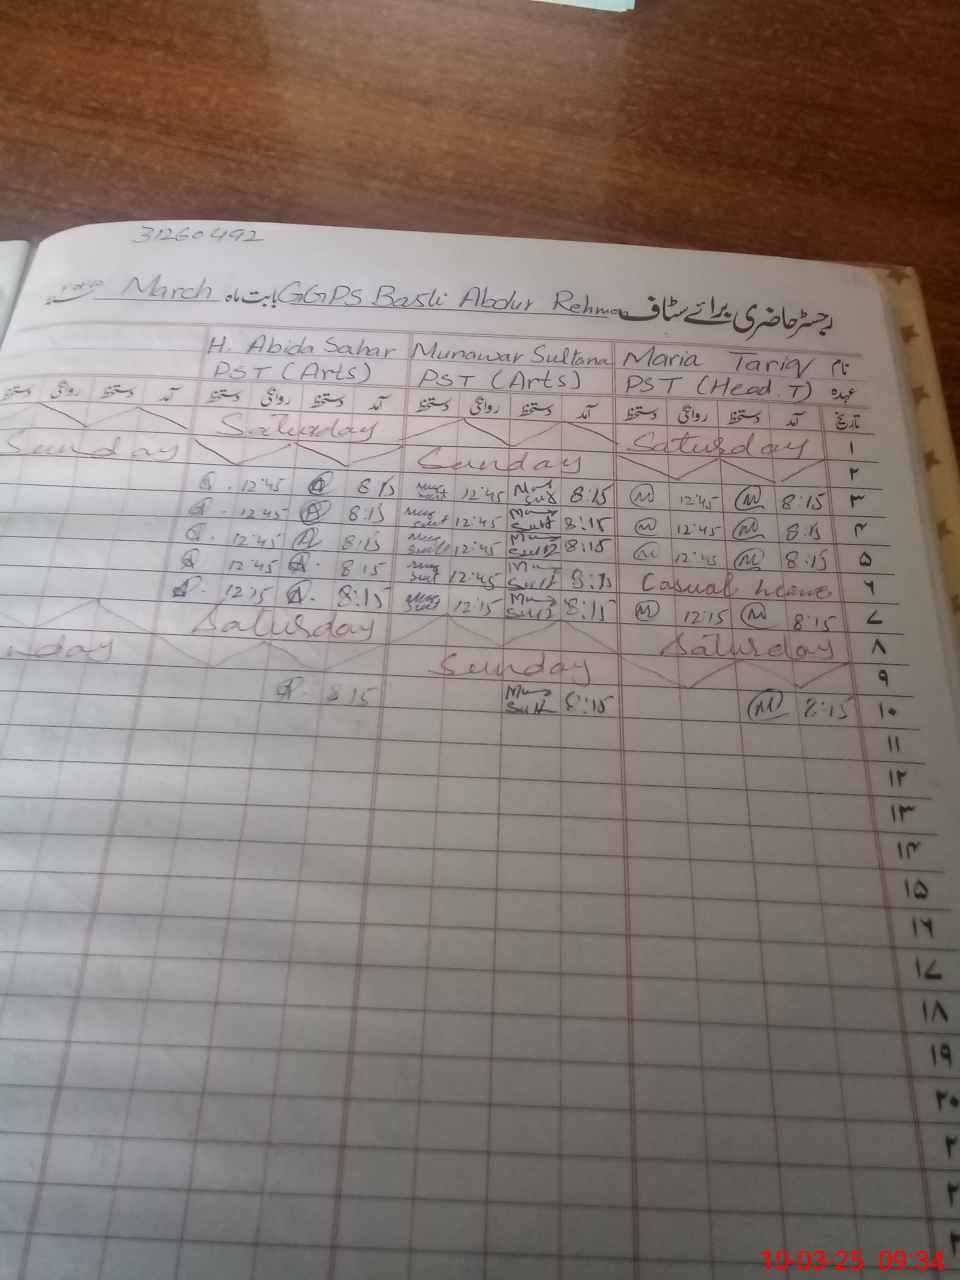 31260492
رجسٹر حاضری برائے سٹاف GGPS Basti Abdur Rehman بابت ماہ March
نام Maria Tariq Munawar Sultana H. Abida Sahar
عہدہ PST (Head.T) PST (Arts) PST (Arts)
تاریخ آمد دستخط روانگی دستخط آمد دستخط روانگی دستخط آمد دستخط روانگی دستخط آمد دستخط روانگی دستخط
۱ Saturday Saturday
۲ Sunday Sunday
۳ 8:15 M 12:45 M 8:15 12:45 8:15 A 12:45
۴ 8:15 M 12:45 M 8:15 12:45 8:15 A 12:45
۵ 8:15 M 12:45 M 8:15 12:45 8:15 A 12:45
۶ Casual leave 8:15 12:45 8:15 A 12:45
۷ 8:15 M 12:15 M 8:15 12:15 8:15 A 12:15
۸ Saturday Saturday
۹ Sunday nday
۱۰ 8:15 M 8:15 8:15
۱۱
۱۲
۱۳
۱۴
۱۵
۱۶
۱۷
۱۸
۱۹
۲۰
10-03-25 09:34